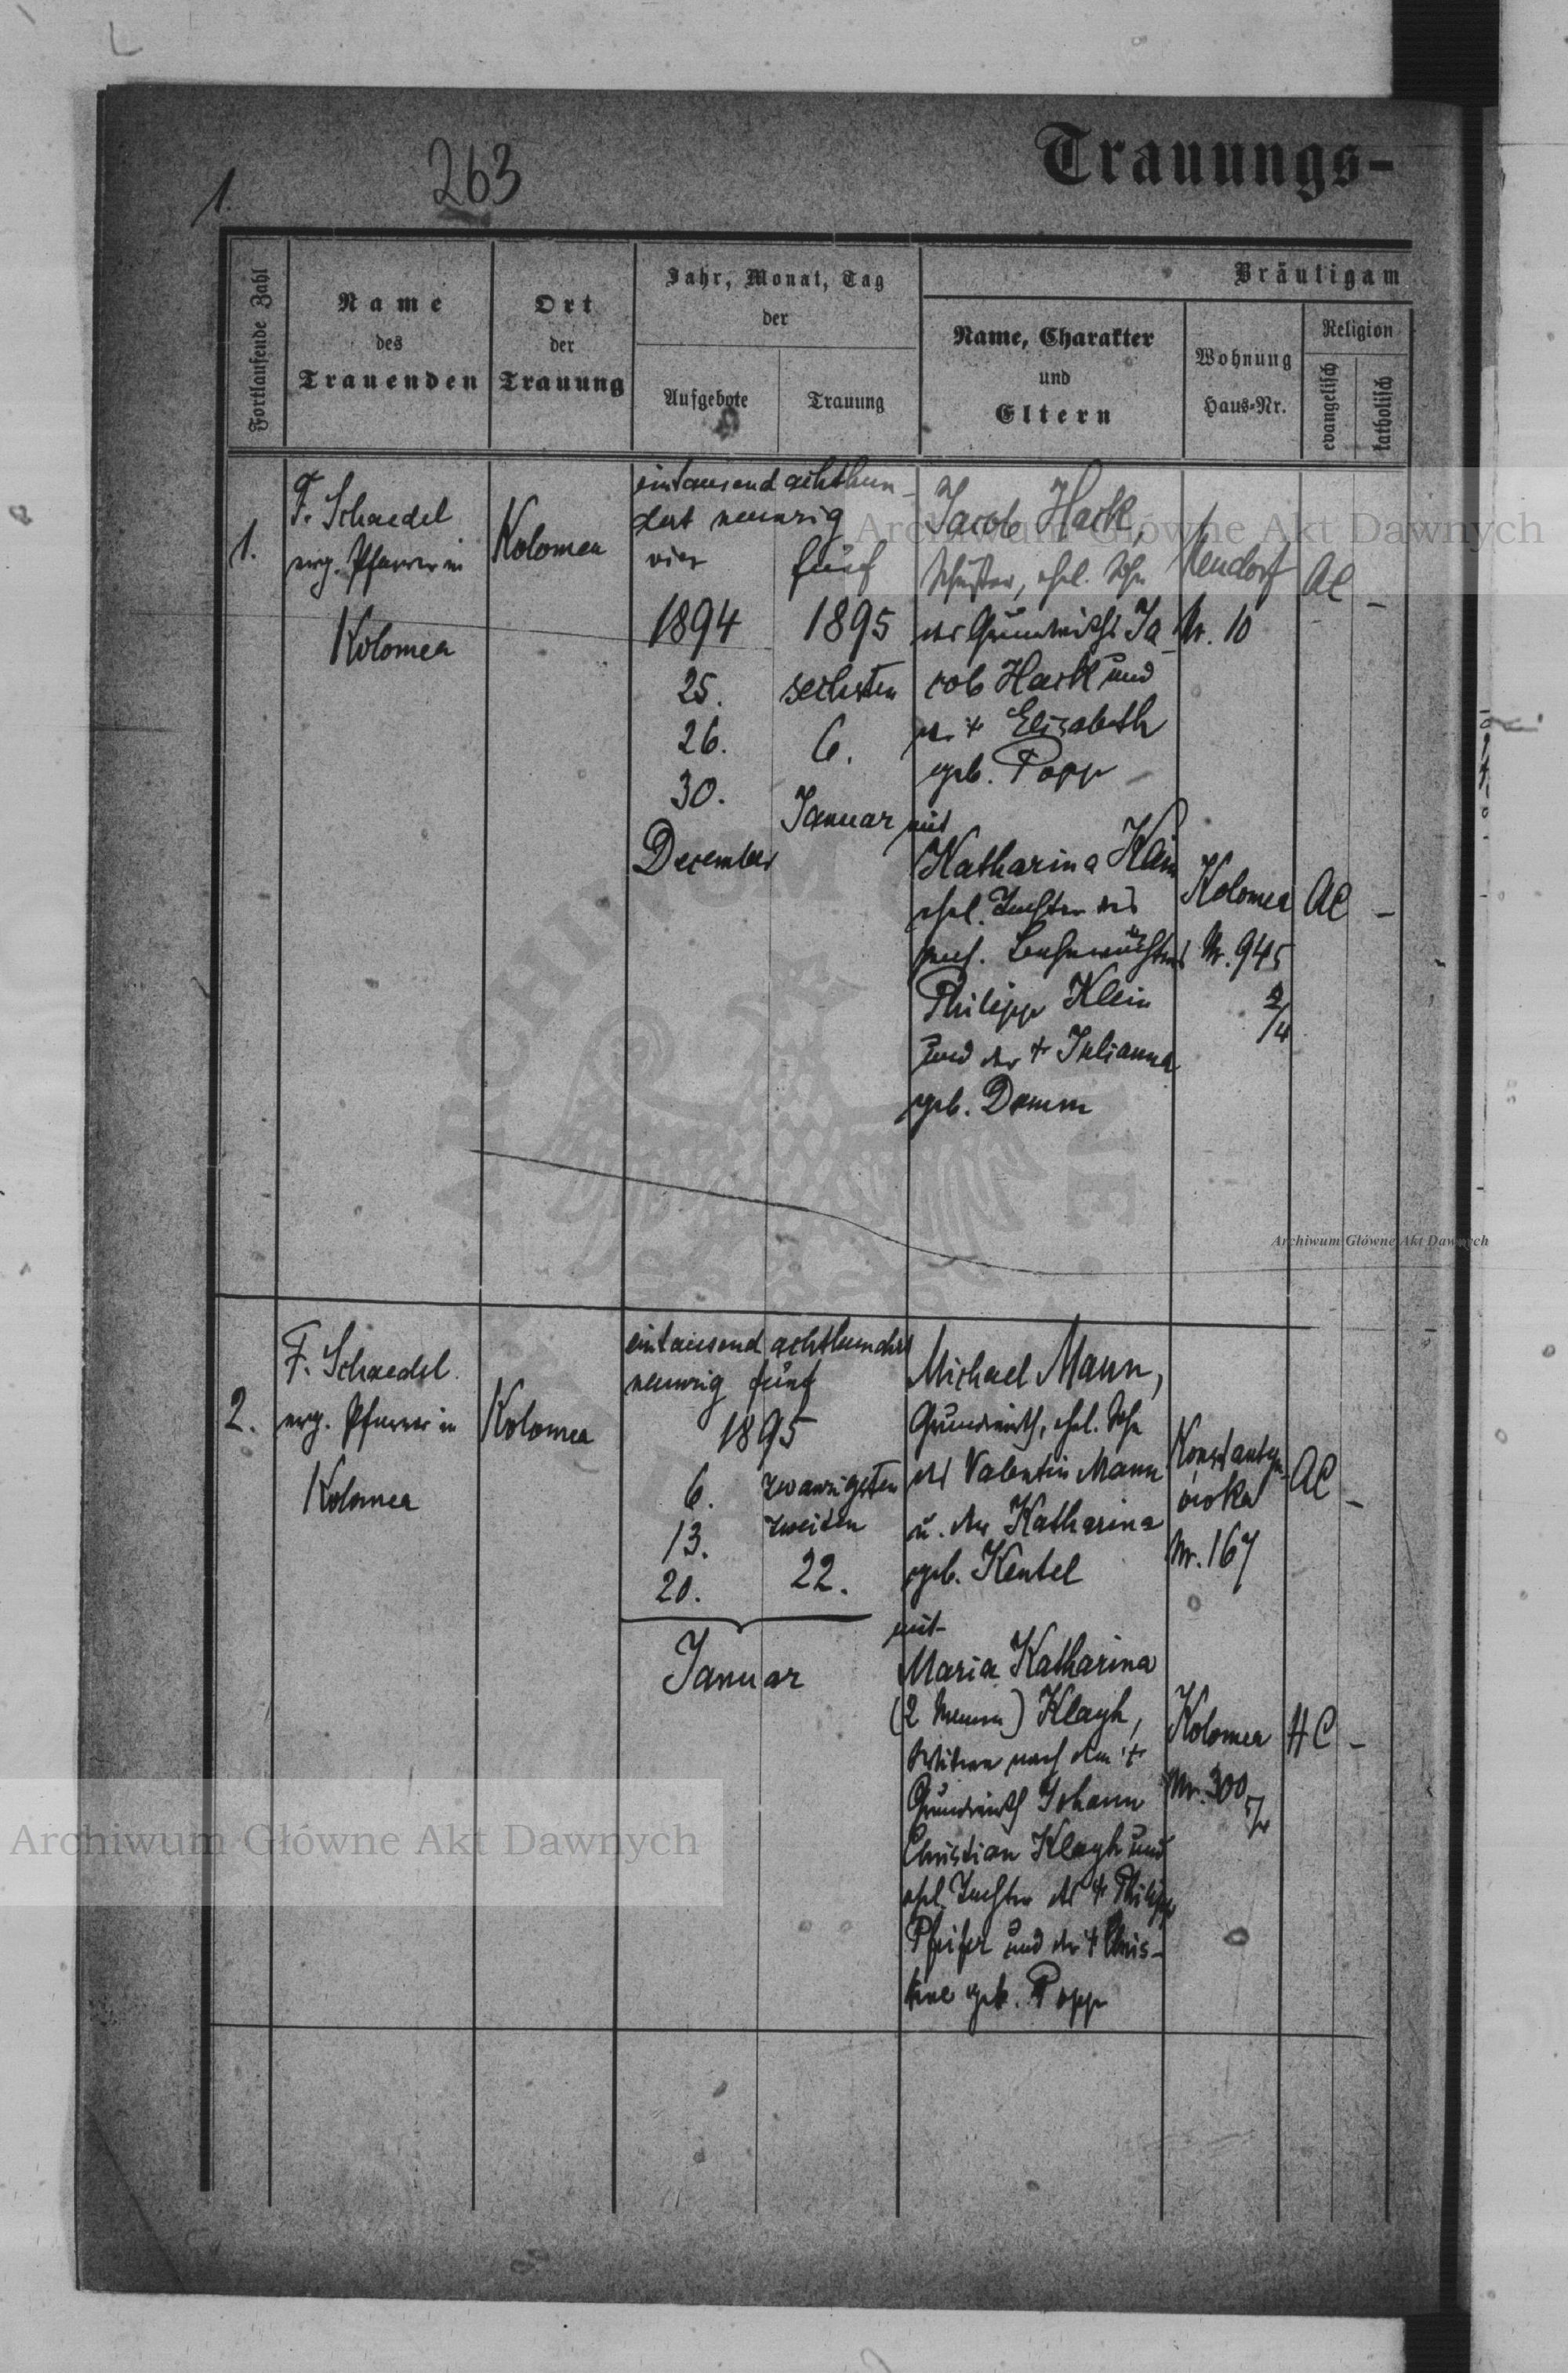 263
1.
Trauungs-
Fortlaufende Zahl
Name
des
Trauenden
Ort
der
Trauung
Jahr, Monat, Tag
der
Aufgebote
Trauung
Bräutigam
Name, Charakter
und
Eltern
Wohnung
Haus-Nr.
Religion
evangelisch
katholisch
1.
F. Schaedel
evg. Pfarrer in
Kolomea
Kolomea
eintausend achthun-
dert neunzig
vier
fünf
1894
1895
25.
sechsten
26.
6.
30.
Januar
December
Jacob Hack,
Schuster, ehel. Sohn
des Grundwirths Ja-
cob Hack und
der + Elisabeth
geb. Popp
Neudorf
Nr. 10
AC
-
mit
Katharina Klein
ehel. Tochter des
Philipp Klein
und der + Julianna
geb. Damm
Kolomea
Nr. 945
AC
-
2.
F. Schaedel
evg. Pfarrer in
Kolomea
Kolomea
eintausend achthundert
neunzig fünf
1895
6.
zwanzigsten
13.
zweiten
20.
22.
Januar
Michael Mann,
Grundwirth, ehel. Sohn
des Valentin Mann
u. der Katharina
geb. Kentel
Konstantyn-
owka
Nr. 167
AC
-
mit
Maria Katharina
(2 Namen) Klagh,
Witwe nach dem +
Grundwirth Johann
Christian Klagh und
ehel. Tochter des + Philipp
Pfeifer und der + Chris-
tine geb. Popp
Kolomea
Nr. 300
HC
-
Archiwum Główne Akt Dawnych
Archiwum Główne Akt Dawnych
Archiwum Główne Akt Dawnych